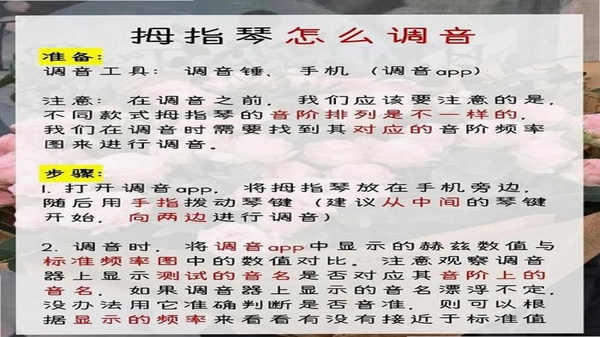 拇指琴怎么调音
准备:
调音工具: 调音锤、手机 (调音app)
注意: 在调音之前, 我们应该要注意的是,
不同款式拇指琴的音阶排列是不一样的,
我们在调音时需要找到其对应的音阶频率
图来进行调音。
步骤:
1. 打开调音app, 将拇指琴放在手机旁边,
随后用手指拨动琴键 (建议从中间的琴键
开始, 向两边进行调音)
2. 调音时, 将调音app中显示的赫兹数值与
标准频率图中的数值对比。注意观察调音
器上显示测试的音名是否对应其音阶上的
音名, 如果调音器上显示的音名漂浮不定,
没办法用它准确判断是否音准, 则可以根
据显示的频率来看看有没有接近于标准值